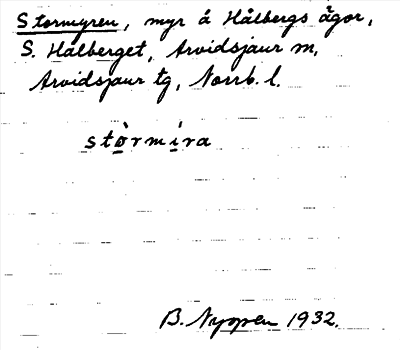 Stormyren, myr å Hålbergs ägor,
S. Hålberget, Arvidsjaur m,
Arvidsjaur tg, Norrb. l.
stò̱rmi̱ra
B. Nyppen 1932.